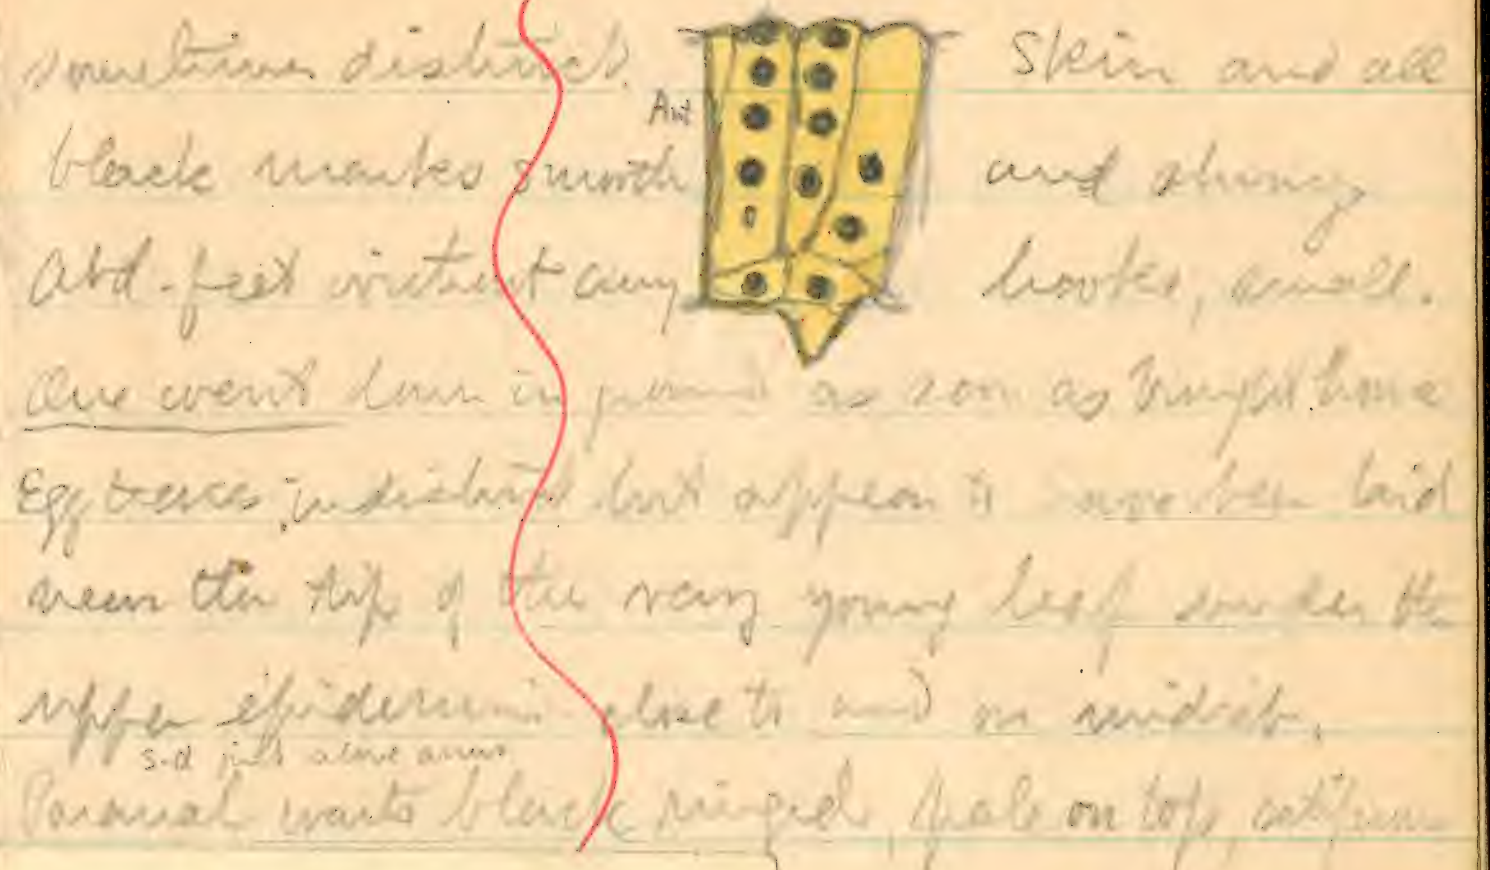 sometimes distinct. Skin and all
Ant
black marks smooth and shiny
Abd-feet without any hooks, small.
One went down in ground as soon as brought home
Egg traces indistinct but appear to have been laid
near the tip of the very young leaf under the
upper epidermis close to and on midrib.
s-d just above anus
Paranal warts black ringed, pale on top